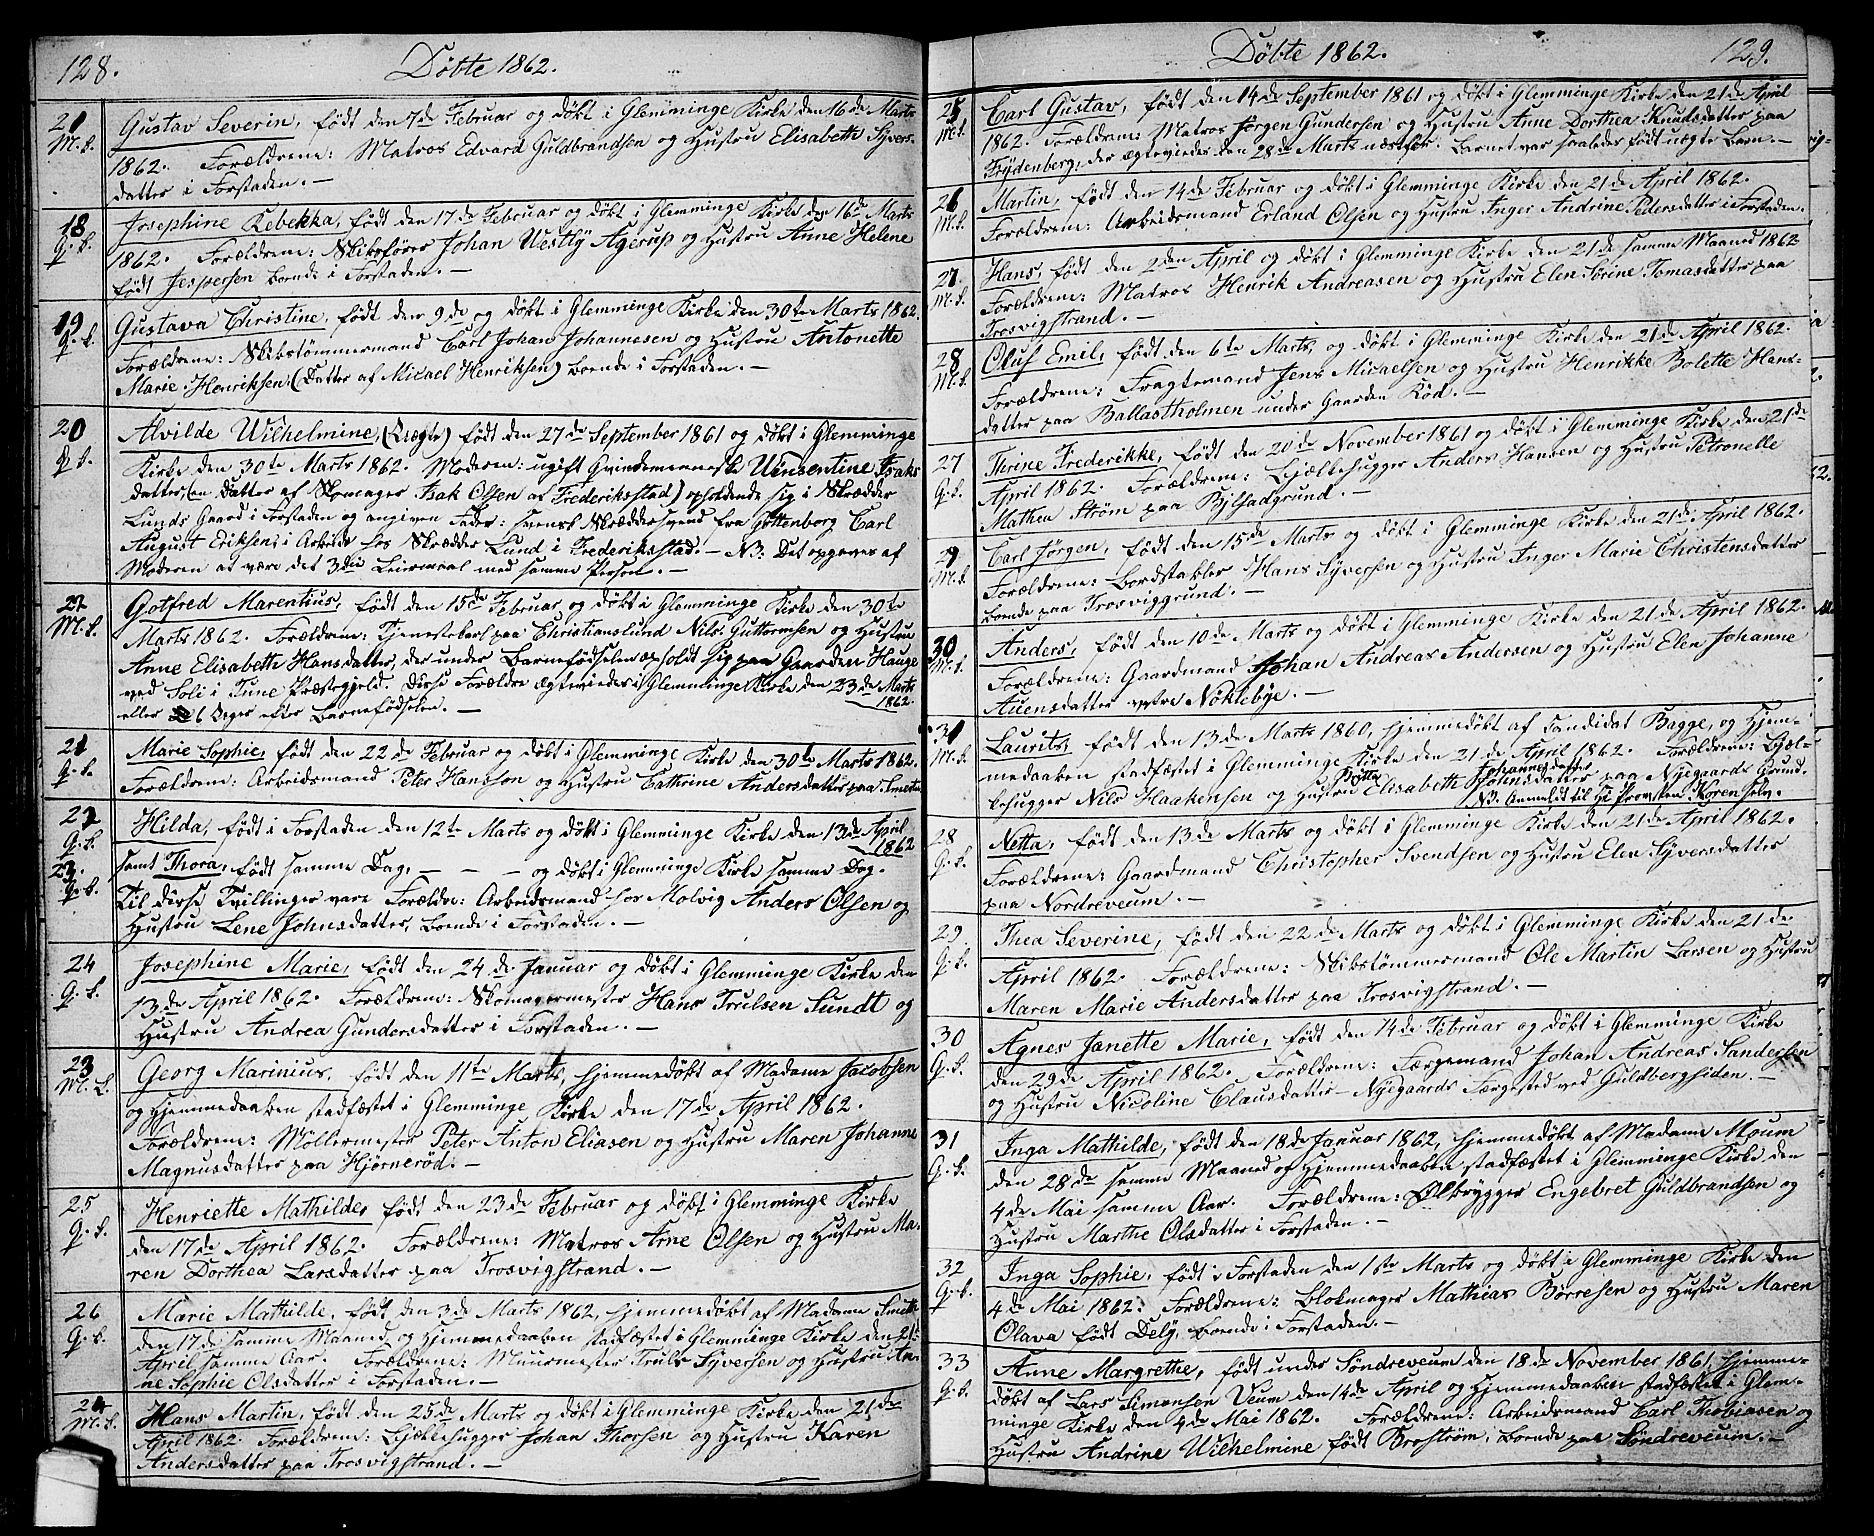 128.
Döbte 1862.
21 Gustav Severin, født den 7de Februar og døbt i Glemminge Kirke den 16de Marts
M. k. 1862. Forældrene: Matros Edvard Guldbrandsen og Hustru Elisabeth Syvers-
datter i Forstaden. —
18 Josephine Rebekka, født den 17de Februar og døbt i Glemminge Kirke den 16de Marts
Q. k. 1862. Forældrene: Skibsfører Johan Westly Agerup og Hustru Anne Helene
født Jespersen boende i Forstaden. —
19 Gustava Christine, født den 9de og døbt i Glemminge Kirke den 30te Marts 1862.
Q. k. Forældrene: Skibstømmermand Carl Johan Johannesen og Hustru Antonette
Marie Henriksen, (Datter af Micael Henriksen) boende i Forstaden. —
20 Alvilde Wilhelmine, (Uægte) født den 27de September 1861 og døbt i Glemminge
Q. k. Kirke den 30te Marts 1862. Moderen: ugift Qvindemenneske Vinsentine Isaks-
datter (en Datter af Skomager Isak Olsen af Frederiksstad) opholdende sig i Skrædder
Lunds Gaard i Forstaden og angiven Fader: svensk Skræddersvend fra Gøttenborg Carl
August Eriksen, i Arbeide hos Skrædder Lund i Frederiksstad. — NB: Det opgives af
Moderen at være det 3die Leiermaal med samme Person. —
22 Gotfred Marentius, født den 15de Februar og døbt i Glemminge Kirke den 30te
M. k. Marts 1862. Forældrene: Tjenestekarl paa Christianslund Nils Guttormsen og Hustru
Anne Elisabeth Hansdatter, der under Barnefødselen opholdt sig paa Gaarden Hauge
ved Soli i Tune Præstegjeld. Disse Forældre ægteviedes i Glemminge Kirke den 23de Marts
1862.
eller 6 Uger efter Barnefødselen. —
21 Marie Sophie, født den 22de Februar og døbt i Glemminge Kirke den 30te Marts 1862.
Q. k. Forældrene: Arbeidsmand Peter Hansson og Hustru Cathrine Andersdatter paa
22 Hilda, født i Forstaden den 12te Marts og døbt i Glemminge Kirke den 13de April
Q. k. 1862
23. samt Thora, født samme Dag, — — — og døbt i Glemminge Kirke samme Dag.
Q. k. Til disse Tvillinger vare Forældre: Arbeidsmand hos Molvig Anders Olsen og
Hustru Lene Johnsdatter, boende i Forstaden. —
24 Josephine Marie, født den 24de Januar og døbt i Glemminge Kirke den
Q. k. 13de April 1862. Forældrene: Skomagermester Hans Trulsen Sundt og
Hustru Andrea Gundersdatter i Forstaden. —
23 Georg Marinius, født den 11te Marts, hjemmedøbt af Madame Jacobsen
M. k. og Hjemmedaaben stadfæstet i Glemminge Kirke den 17de April 1862.
Forældrene: Møllermester Peter Anton Eliasen og Hustru Maren Johanne
Magnusdatter paa Hjørnerød. —
25 Henriette Mathilde, født den 23de Februar og døbt i Glemminge Kirke
Q. k. den 17de April 1862. Forældrene: Matros Arne Olsen og Hustru Ma-
ren Dorthea Larsdatter paa Trosvigstrand. —
26 Marie Mathilde, født den 3de Marts 1862, hjemmedøbt af Madame Smith
Q. k. den 17de samme Maaned og Hjemmedaaben stadfæstet i Glemminge Kirke den 21de
April samme Aar. Forældrene: Muurmester Truls Syversen og Hustru An-
ne Sophie Olsdatter i Forstaden. —
24 Hans Martin, født den 25de Marts og døbt i Glemminge Kirke den 21de
M. k. April 1862. Forældrene: Bjælkehugger Johan Thorsen og Hustru Karen
Andersdatter paa Trosvigstrand. —
Döbte 1862.
129.
25 Carl Gustav, født den 14de September 1861 og døbt i Glemminge Kirke den 21de April
M. k. 1862. Forældrene: Matros Jørgen Gundersen og Hustru Anne Dorthea Knudsdatter paa
Frydenberg, der ægteviedes den 28de Marts næstefter. Barnet var saaledes født uægte Barn. —
26 Martin, født den 14de Februar og døbt i Glemminge Kirke den 21de April 1862.
M. k. Forældrene: Arbeidsmand Erland Olsen og Hustru Inger Andrine Pedersdatter i Forstaden.
27. Hans, født den 2den April og døbt i Glemminge Kirke den 21de samme Maaned 1862
M. k. Forældrene: Matros Henrik Andreasen og Hustru Elen Sørine Tomasdatter paa
Trosvigstrand. —
28 Oluf Emil, født den 6te Marts, og døbt i Glemminge Kirke den 21de April 1862.
M. k. Forældrene: Fragtemand Jens Micaelsen og Hustru Henrikke Bolette Hans-
datter paa Ballastholmen under Gaarden Kød. —
27 Thrine Frederikke, født den 20de November 1861 og døbt i Glemminge Kirke den 21de
Q. k. April 1862. Forældrene: Bjælkehugger Anders Hansen og Hustru Petronelle
Mathea Strøm paa
29 Carl Jørgen, født den 15de Marts og døbt i Glemminge Kirke den 21de April 1862.
M. k. Forældrene: Bordstabler Hans Syversen og Hustru Inger Marie Christensdatter
boende paa Trosviggrund. —
30 Anders, født den 10de Marts og døbt i Glemminge Kirke den 21de April 1862.
M. k. Forældrene: Gaardmand Johan Andreas Andersen og Hustru Elen Johanne
Auensdatter vestre Nøklebye. —
31 Laurits, født den 13de Marts 1860, hjemmedøbt af Candidat Bagge, og Hjem-
M. k. medaaben stadfæstet i Glemminge Kirke den 21de April 1862. Forældrene: Bjæl-
kehugger Nils Haakensen og Hustru Britta Elisabeth Johannesdatter Johnsdatter paa Nygaards Grund.
NB. Anmeldt til Hr. Provsten Koren selv.
28 Netta, født den 13de Marts og døbt i Glemminge Kirke den 21de April 1862.
Q. k. Forældrene: Gaardmand Christopher Svendsen og Hustru Elen Syversdatter
paa Nordreveum. —
29. Thea Severine, født den 22de Marts og døbt i Glemminge Kirke den 21de
Q. k. April 1862. Forældrene: Skibstømmermand Ole Martin Larsen og Hustru
Maren Marie Andersdatter paa Trosvigstrand. —
30 Agnes Janette Marie, født den 14de Februar og døbt i Glemminge Kirke
Q. k. den 29de April 1862. Forældrene: Færgemand Johan Andreas Sandersen
og Hustru Nicoline Clausdatter — Nygaards Færgested ved Guldbergsiden. —
31 Inga Mathilde, født den 18de Januar 1862, hjemmedøbt af Madame Moum
Q. k. den 28de samme Maaned og Hjemmedaaben stadfæstet i Glemminge Kirke den
4de Mai samme Aar. Forældrene: Ølbrygger Engebret Guldbrandsen og
Hustru Marthe Olsdatter i Forstaden. —
32 Inga Sophie, født i Forstaden den 1ste Marts og døbt i Glemminge Kirke den
Q. k. 4de Mai 1862. Forældrene: Blokmager Mathias Børresen og Hustru Maren
Olava født Dely, boende i Forstaden. —
33 Anne Margrethe, født under Søndreveum den 18de November 1861, hjemme-
Q. k. døbt af Lars Simonsen Veum den 14de April og Hjemmedaaben stadfæstet i Glem-
minge Kirke den 4de Mai 1862. Forældrene: Arbeidsmand Carl Thobiasen og
Hustru Andrine Wilhelmine født Brostrøm, boende paa Søndreveum. —